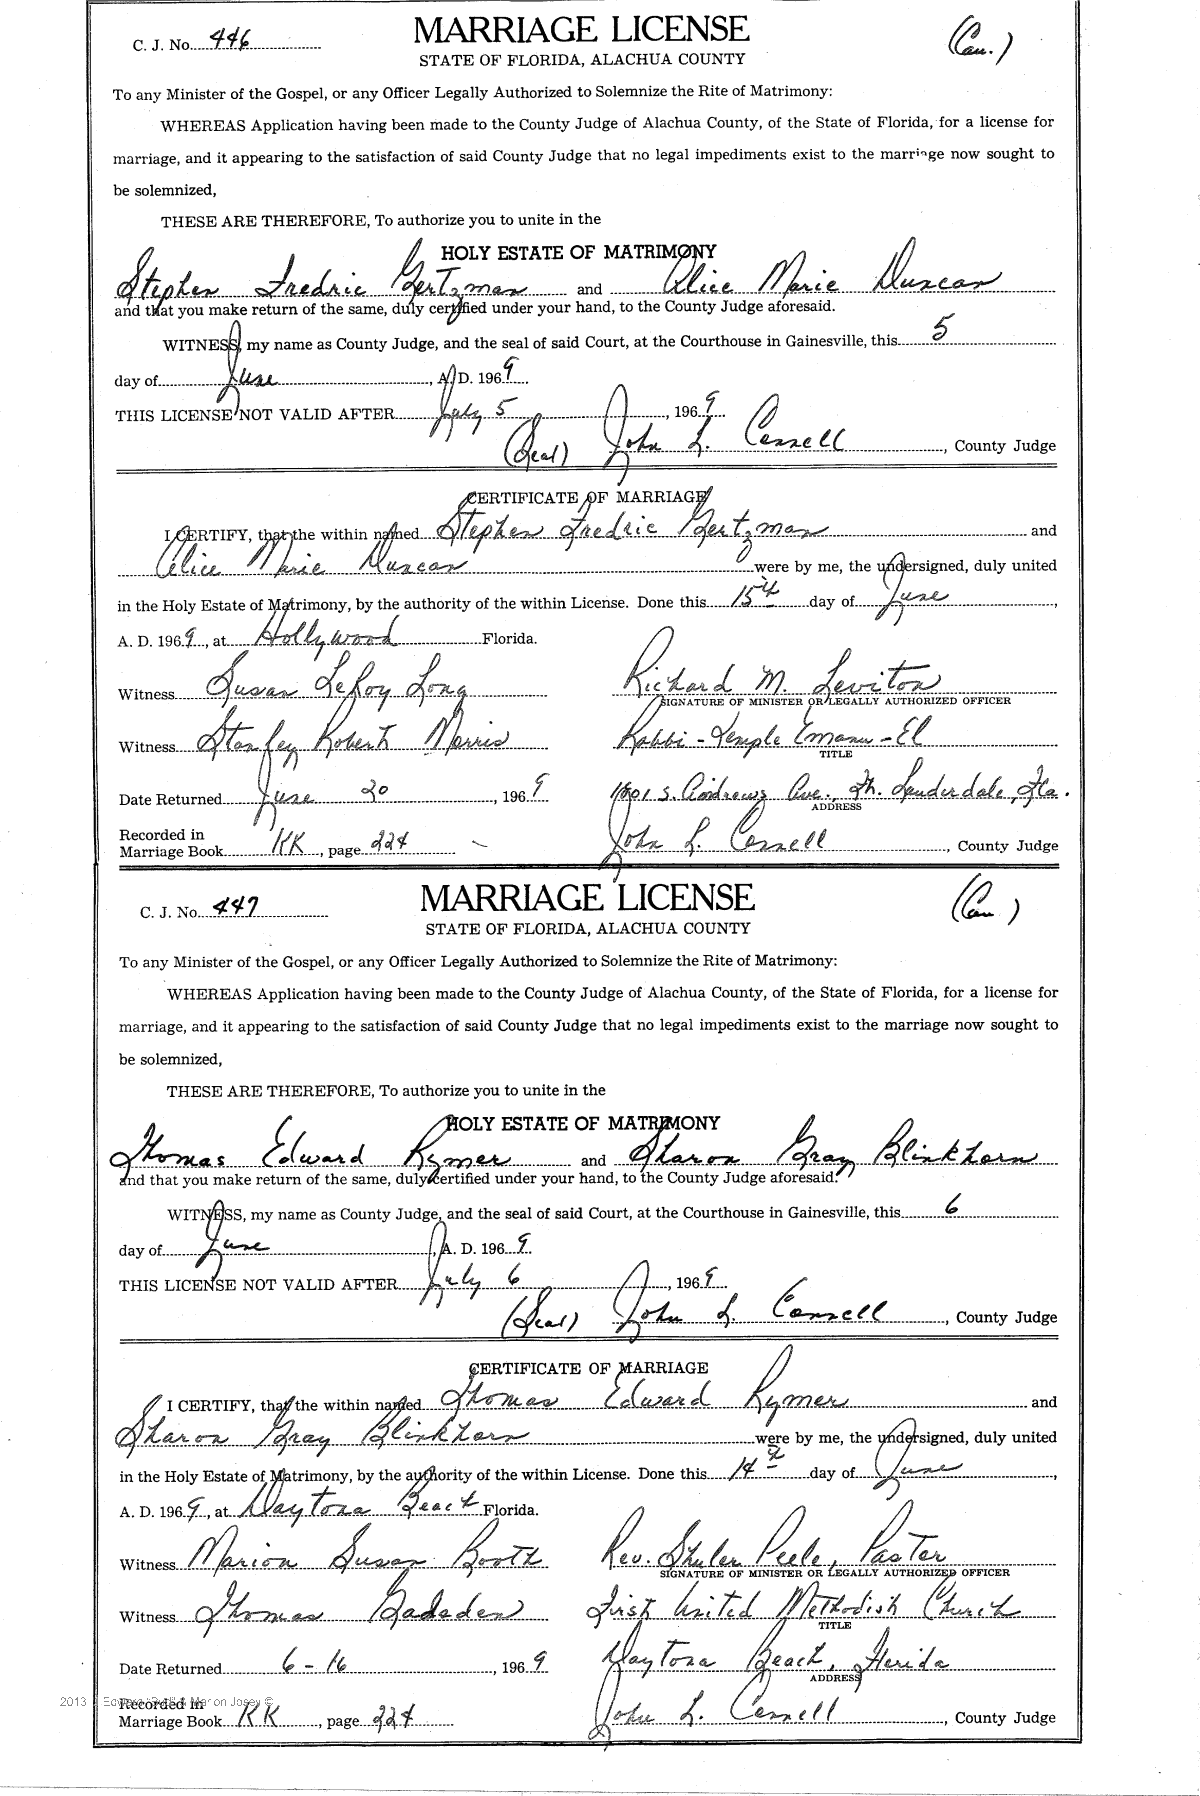 C. J. No. 446
MARRIAGE LICENSE
(Cau.)
STATE OF FLORIDA, ALACHUA COUNTY
To any Minister of the Gospel, or any Officer Legally Authorized to Solemnize the Rite of Matrimony:
WHEREAS Application having been made to the County Judge of Alachua County, of the State of Florida, for a license for
marriage, and it appearing to the satisfaction of said County Judge that no legal impediments exist to the marriage now sought to
be solemnized,
THESE ARE THEREFORE, To authorize you to unite in the
HOLY ESTATE OF MATRIMONY
Stephen Fredric Gertzman and Alice Marie Duncan
and that you make return of the same, duly certified under your hand, to the County Judge aforesaid.
WITNESS, my name as County Judge, and the seal of said Court, at the Courthouse in Gainesville, this 5
day of June, A. D. 1969
THIS LICENSE NOT VALID AFTER July 5, 1969
(Seal) John L. Connell, County Judge
CERTIFICATE OF MARRIAGE
I CERTIFY, that the within named Stephen Fredric Gertzman and
Alice Marie Duncan were by me, the undersigned, duly united
in the Holy Estate of Matrimony, by the authority of the within License. Done this 15th day of June,
A. D. 1969, at Hollywood Florida.
Witness Susan LeRoy Long
Richard M. Leviton
SIGNATURE OF MINISTER OR LEGALLY AUTHORIZED OFFICER
Witness Stanley Robert Morris
Rabbi - Temple Emanu-El
TITLE
Date Returned June 20, 1969
1801 S. Andrews Ave., Ft. Lauderdale, Fla.
ADDRESS
Recorded in
Marriage Book KK, page 224
John L. Connell, County Judge
C. J. No. 447
MARRIAGE LICENSE
(Cau.)
STATE OF FLORIDA, ALACHUA COUNTY
To any Minister of the Gospel, or any Officer Legally Authorized to Solemnize the Rite of Matrimony:
WHEREAS Application having been made to the County Judge of Alachua County, of the State of Florida, for a license for
marriage, and it appearing to the satisfaction of said County Judge that no legal impediments exist to the marriage now sought to
be solemnized,
THESE ARE THEREFORE, To authorize you to unite in the
HOLY ESTATE OF MATRIMONY
Thomas Edward Rymer and Sharon Gray Blinkhorn
and that you make return of the same, duly certified under your hand, to the County Judge aforesaid.
WITNESS, my name as County Judge, and the seal of said Court, at the Courthouse in Gainesville, this 6
day of June, A. D. 1969
THIS LICENSE NOT VALID AFTER July 6, 1969
(Seal) John L. Connell, County Judge
CERTIFICATE OF MARRIAGE
I CERTIFY, that the within named Thomas Edward Rymer and
Sharon Gray Blinkhorn were by me, the undersigned, duly united
in the Holy Estate of Matrimony, by the authority of the within License. Done this 14th day of June,
A. D. 1969, at Daytona Beach Florida.
Witness Marion Susan Booth
Rev. Shuler Peele, Pastor
SIGNATURE OF MINISTER OR LEGALLY AUTHORIZED OFFICER
Witness Thomas Gadsden
First United Methodist Church
TITLE
Date Returned 6-16, 1969
Daytona Beach, Florida
ADDRESS
2013
Recorded in
Marriage Book KK, page 224
John L. Connell, County Judge